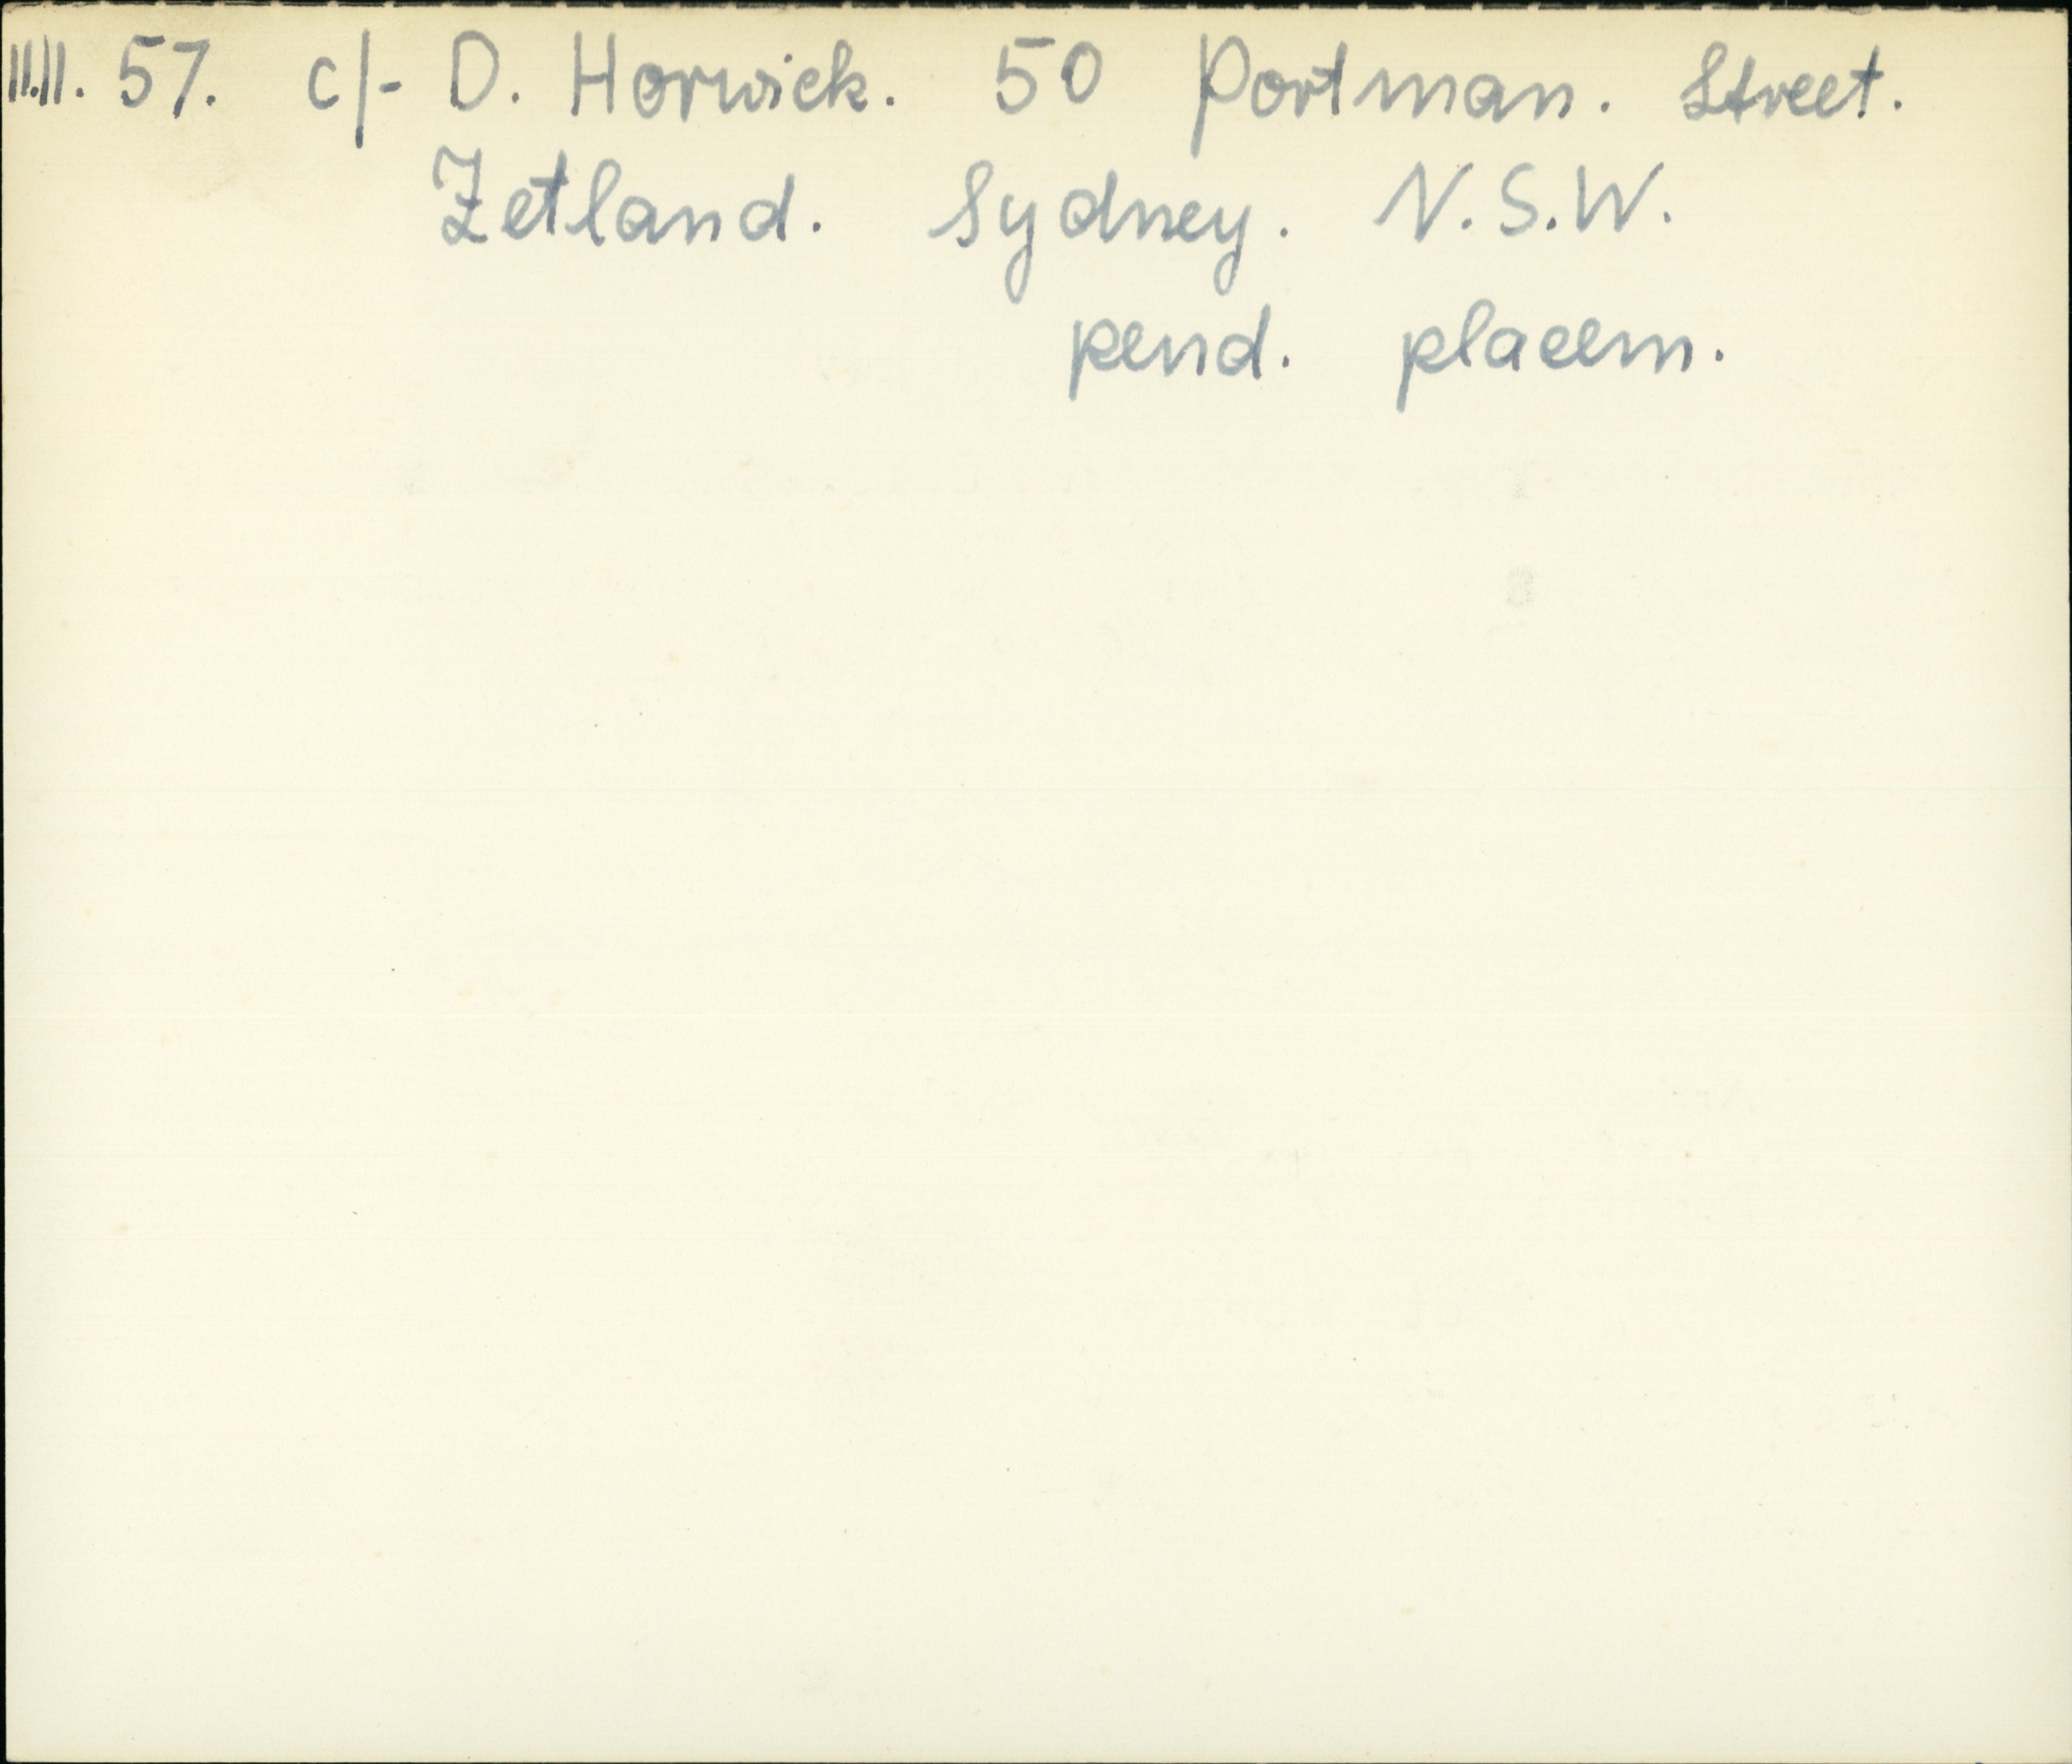 11.11. 57. c/- D. Horwick. 50 Portman. Street.
Zetland. Sydney. N.S.W.
pend. placem.